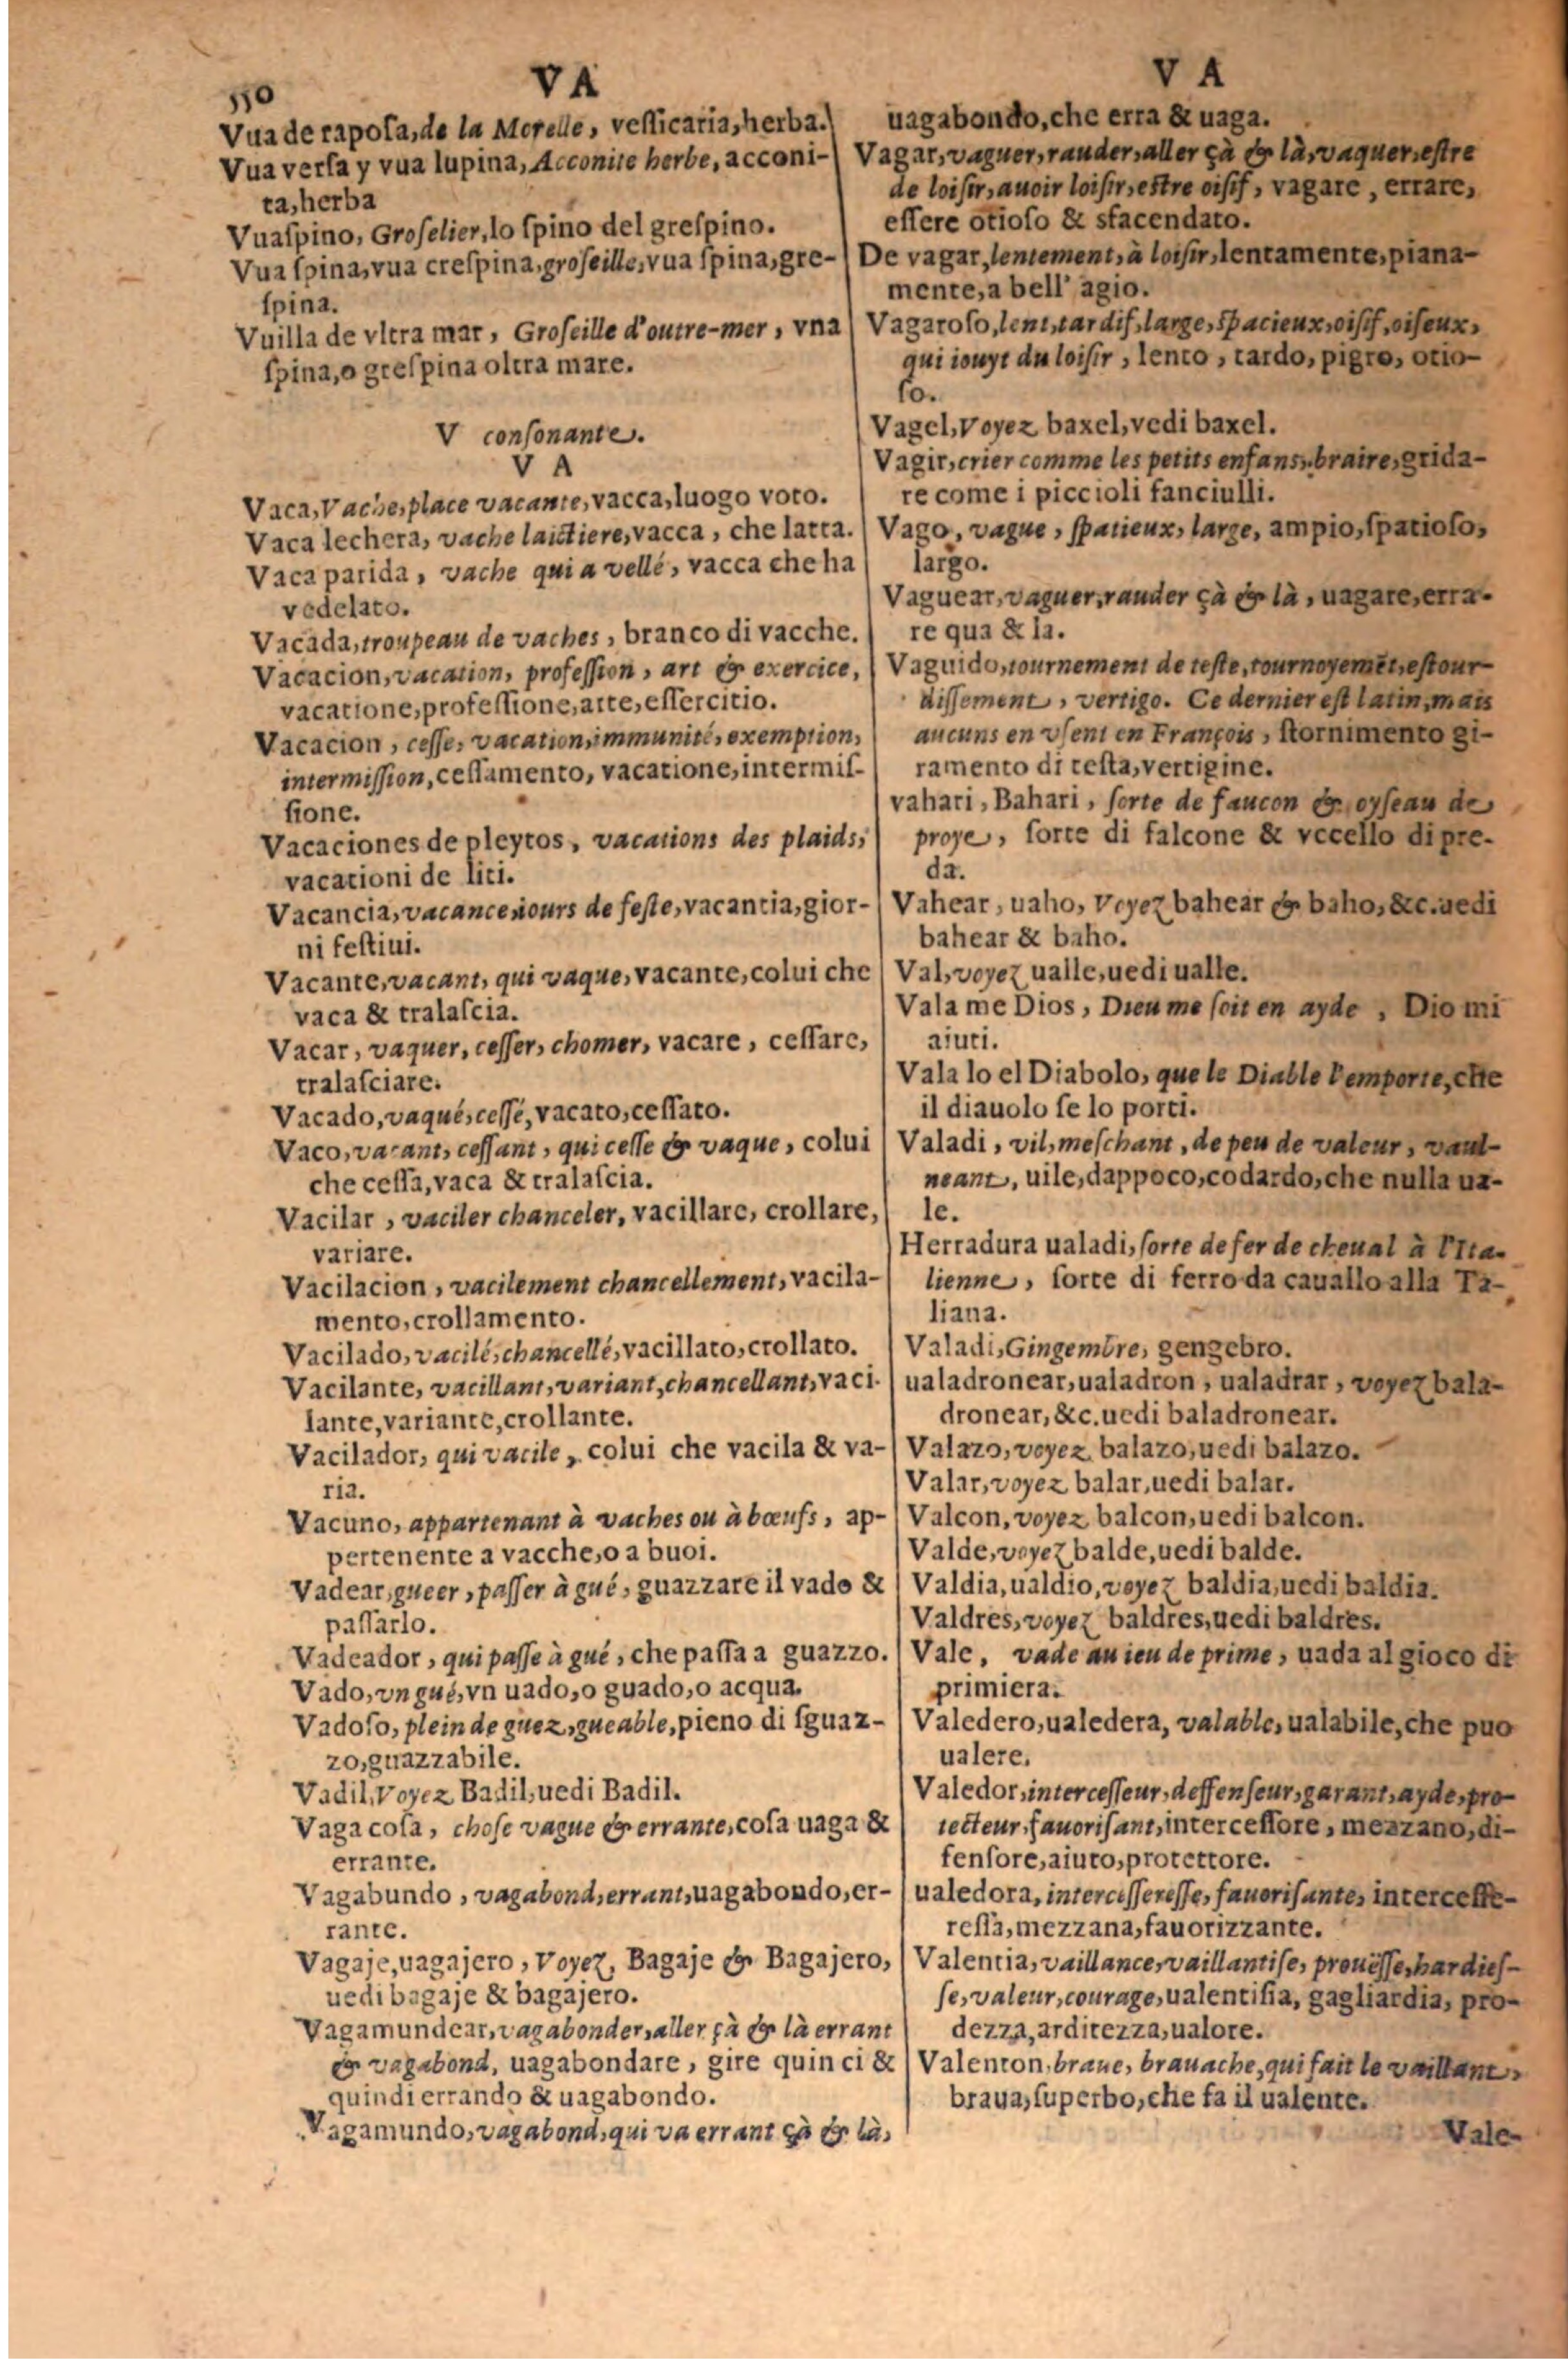 550
V A
V A
Vua de raposa, de la Morelle, vessicaria, herba.
Vua versa y vua lupina, Acconite herbe, acconi-
ta, herba
Vuaspino, Groselier, lo spino del grespino.
Vua spina, vua crespina, groseille, vua spina, gre-
spina.
Vuilla de vltra mar, Groseille d'outre-mer, vna
spina, o grespina oltra mare.
V consonante.
V A
Vaca, Vache, place vacante, vacca, luogo voto.
Vaca lechera, vache laictiere, vacca, che latta.
Vaca parida, vache qui a vellé, vacca che ha
vedelato.
Vacada, troupeau de vaches, branco di vacche.
Vacacion, vacation, profession, art & exercice,
vacatione, professione, arte, essercitio.
Vacacion, cesse, vacation, immunité, exemption,
intermission, cessamento, vacatione, intermis-
sione.
Vacaciones de pleytos, vacations des plaids,
vacationi de liti.
Vacancia, vacance, iours de feste, vacantia, gior-
ni festiui.
Vacante, vacant, qui vaque, vacante, colui che
vaca & tralascia.
Vacar, vaquer, cesser, chomer, vacare, cessare,
tralasciare.
Vacado, vaqué, cessé, vacato, cessato.
Vaco, vacant, cessant, qui cesse & vaque, colui
che cessa, vaca & tralascia.
Vacilar, vaciler chanceler, vacillare, crollare,
variare.
Vacilacion, vacilement chancellement, vacila-
mento, crollamento.
Vacilado, vacilé, chancellé, vacillato, crollato.
Vacilante, vacillant, variant, chancellant, vaci-
lante, variante, crollante.
Vacilador, qui vacile, colui che vacila & va-
ria.
Vacuno, appartenant à vaches ou à bœufs, ap-
pertenente a vacche, o a buoi.
Vadear, gueer, passer à gué, guazzare il vado &
passarlo.
Vadeador, qui passe à gué, che passa a guazzo.
Vado, vn gué, vn uado, o guado, o acqua.
Vadoso, plein de guez, gueable, pieno di sguaz-
zo, guazzabile.
Vadil, Voyez Badil, uedi Badil.
Vaga cosa, chose vague & errante, cosa uaga &
errante.
Vagabundo, vagabond, errant, uagabondo, er-
rante.
Vagaje, uagajero, Voyez, Bagaje & Bagajero,
uedi bagaje & bagajero.
Vagamundear, vagabonder, aller çà & là errant
& vagabond, uagabondare, gire quinci &
quindi errando & uagabondo.
Vagamundo, vagabond, qui va errant çà & là,
uagabondo, che erra & uaga.
Vagar, vaguer, rauder, aller çà & là, vaquer, estre
de loisir, auoir loisir, estre oisif, vagare, errare,
essere otioso & sfacendato.
De vagar, lentement, à loisir, lentamente, piana-
mente, a bell' agio.
Vagaroso, lent, tardif, large, spacieux, oisif, oiseux,
qui iouyt du loisir, lento, tardo, pigro, otio-
so.
Vagel, Voyez baxel, vedi baxel.
Vagir, crier comme les petits enfans, braire, grida-
re come i piccioli fanciulli.
Vago, vague, spatieux, large, ampio, spatioso,
largo.
Vaguear, vaguer, rauder çà & là, uagare, erra-
re qua & la.
Vaguido, tournement de teste, tournoyemẽt, estour-
dissement, vertigo. Ce dernier est latin, mais
aucuns en vsent en François, stornimento gi-
ramento di testa, vertigine.
vahari, Bahari, sorte de faucon & oyseau de
proye, sorte di falcone & vccello di pre-
da.
Vahear, uaho, Voyez bahear & baho, &c. uedi
bahear & baho.
Val, voyez ualle, uedi ualle.
Vala me Dios, Dieu me soit en ayde, Dio mi
aiuti.
Vala lo el Diabolo, que le Diable l'emporte, che
il diauolo se lo porti.
Valadi, vil, meschant, de peu de valeur, vaul-
neant, uile, dappoco, codardo, che nulla ua-
le.
Herradura ualadi, sorte de fer de cheual à l'Ita-
lienne, sorte di ferro da cauallo alla Ta-
liana.
Valadi, Gingembre, gengebro.
ualadronear, ualadron, ualadrar, voyez bala-
dronear, &c. uedi baladronear.
Valazo, voyez balazo, uedi balazo.
Valar, voyez balar, uedi balar.
Valcon, voyez balcon, uedi balcon.
Valde, voyez balde, uedi balde.
Valdia, ualdio, voyez baldia, uedi baldia.
Valdres, voyez baldres, uedi baldres.
Vale, vade au ieu de prime, uada al gioco di
primiera.
Valedero, ualedera, valable, ualabile, che puo
ualere.
Valedor, intercesseur, deffenseur, garant, ayde, pro-
tecteur, fauorisant, intercessore, mezzano, di-
fensore, aiuto, protettore.
ualedora, intercesseresse, fauorisante, intercesse-
ressa, mezzana, fauorizzante.
Valentia, vaillance, vaillantise, prouësse, hardies-
se, valeur, courage, ualentisia, gagliardia, pro-
dezza, arditezza, ualore.
Valenton, braue, brauache, qui fait le vaillant,
braua, superbo, che fa il ualente.
Vale-